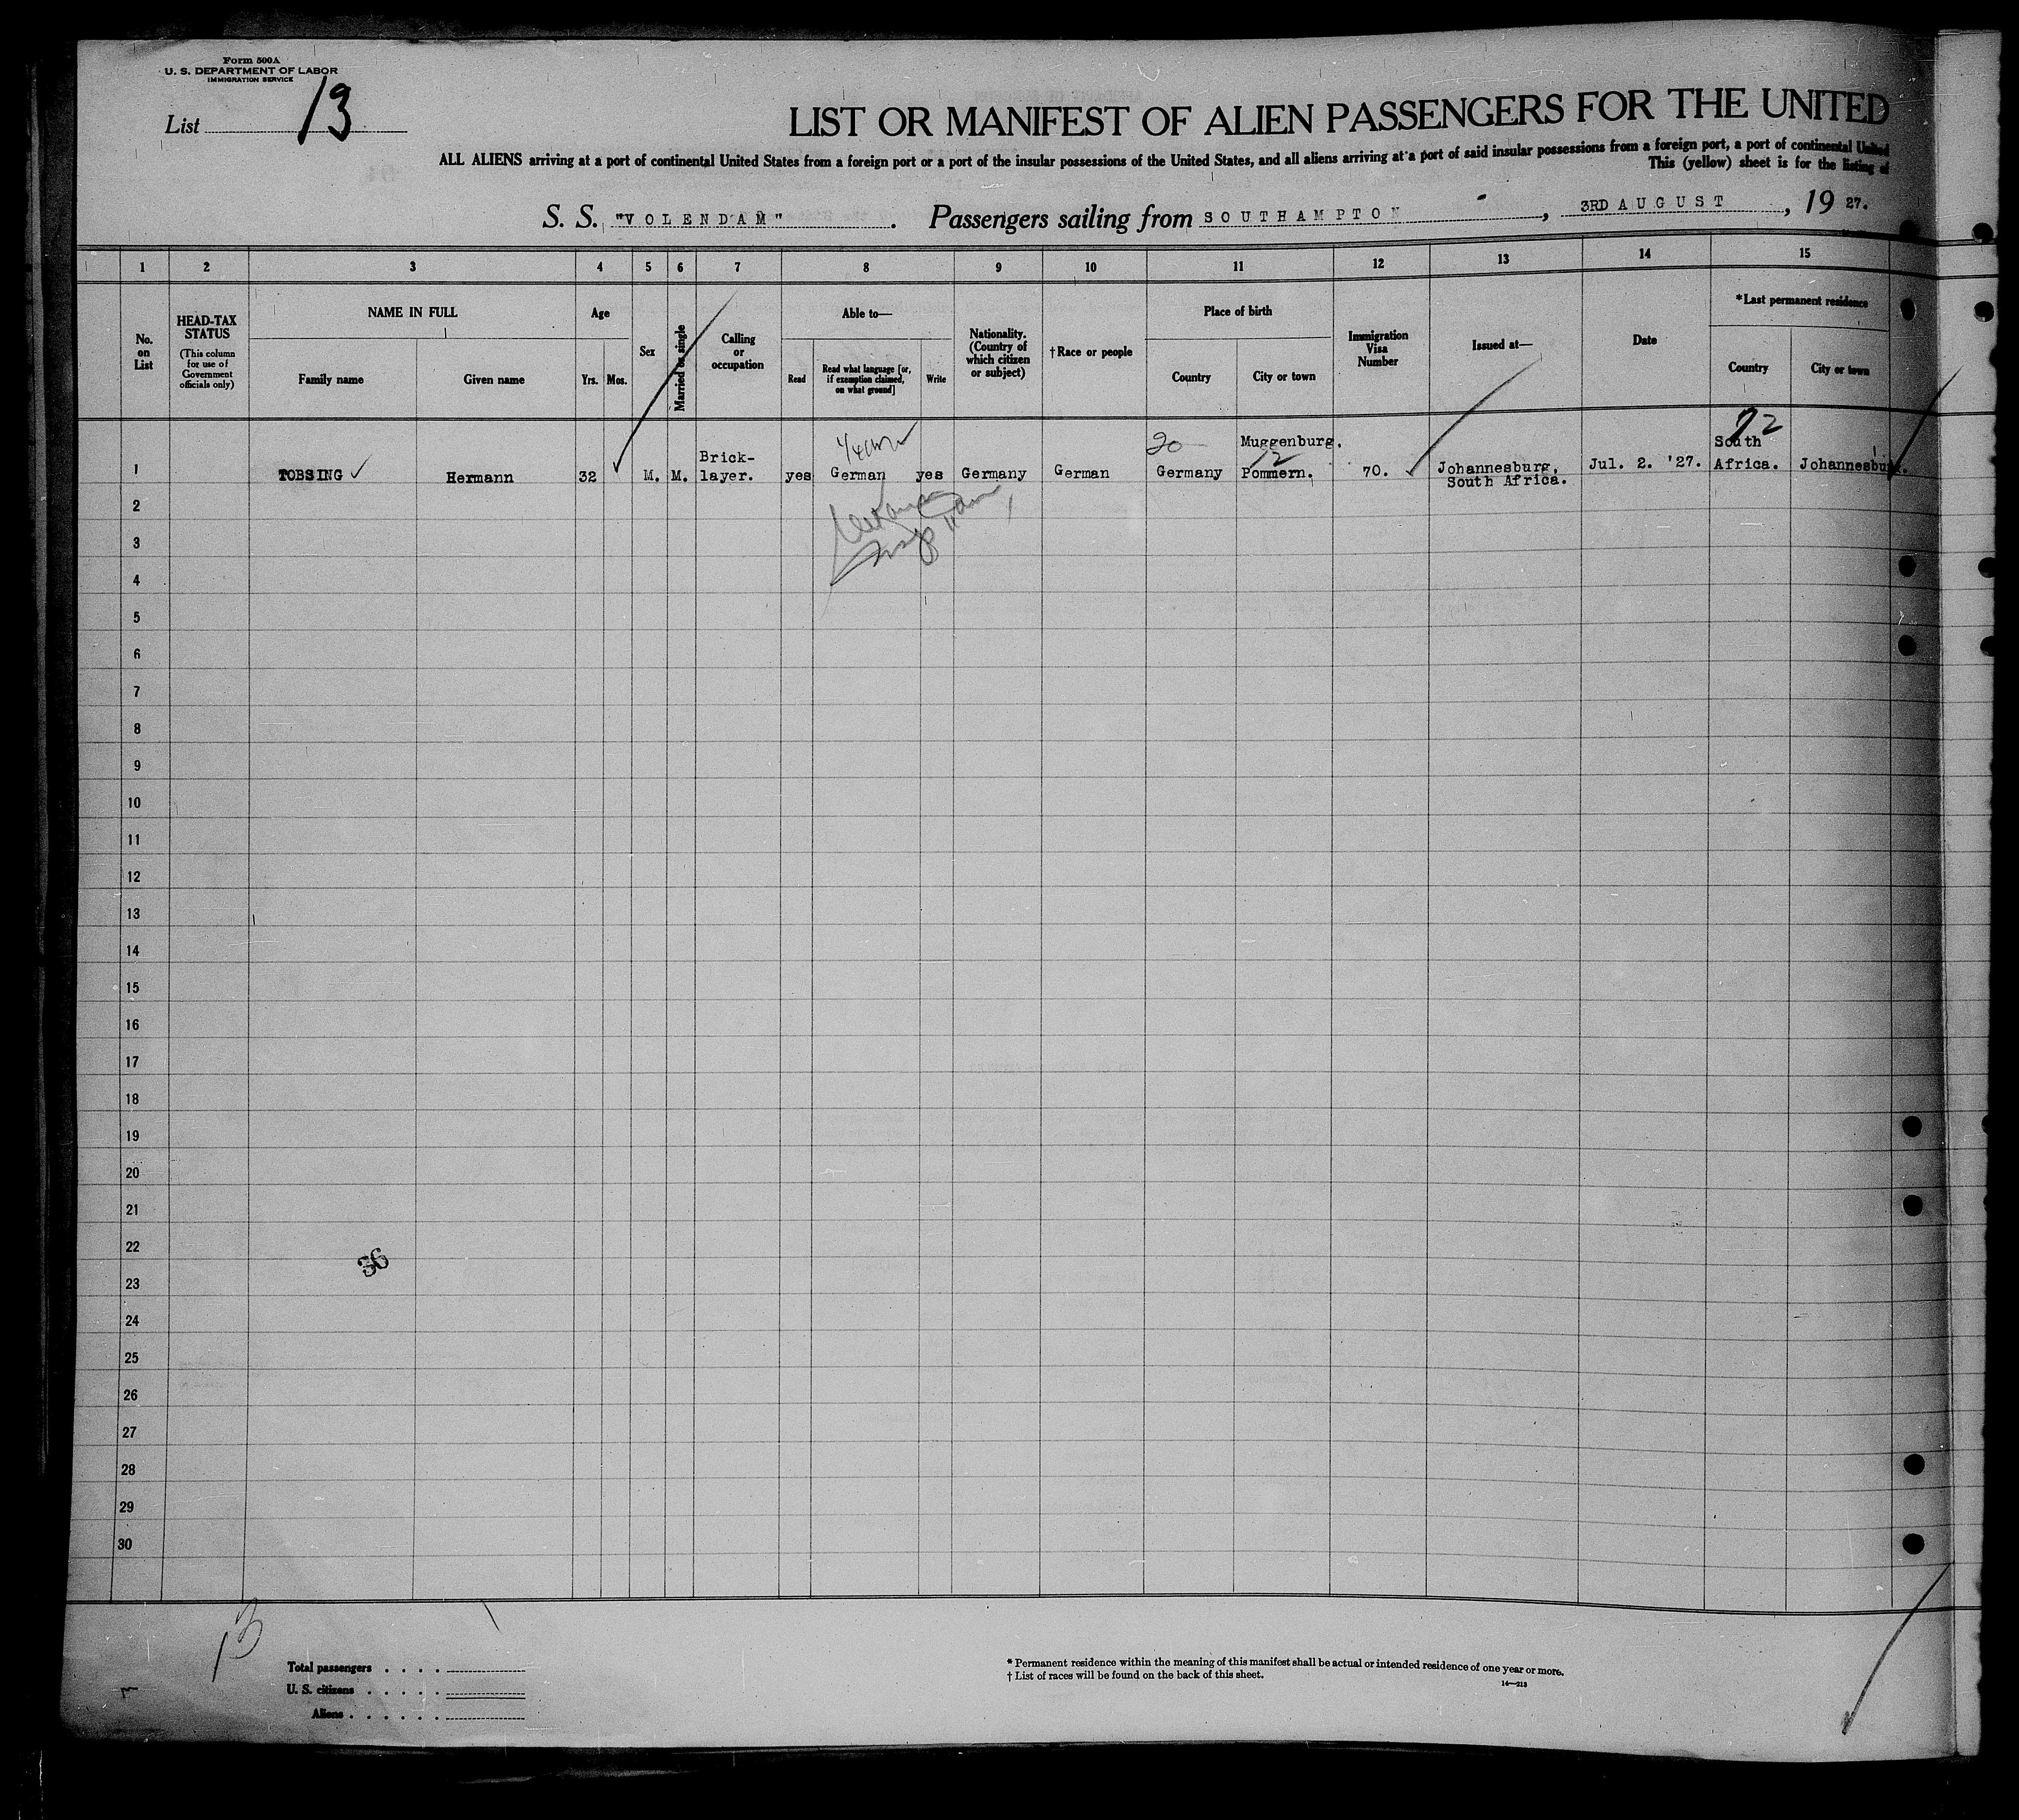 Form 500A
U. S. DEPARTMENT OF LABOR
IMMIGRATION SERVICE
List 13
LIST OR MANIFEST OF ALIEN PASSENGERS FOR THE UNITED
ALL ALIENS arriving at a port of continental United States from a foreign port or a port of the insular possessions of the United States, and all aliens arriving at a port of said insular possessions from a foreign port, a port of continental United
This (yellow) sheet is for the listing of
S. S. "VOLENDAM". Passengers sailing from SOUTHAMPTON, 3RD AUGUST, 19 27.
1 2 3 4 5 6 7 8 9 10 11 12 13 14 15
No. on List
HEAD-TAX STATUS
(This column for use of Government officials only)
NAME IN FULL
Family name
Given name
Age
Yrs. Mos.
Sex
Married or single
Calling or occupation
Able to—
Read
Read what language [or, if exemption claimed, on what ground]
Write
Nationality. (Country of which citizen or subject)
†Race or people
Place of birth
Country
City or town
Immigration Visa Number
Issued at—
Date
*Last permanent residence
Country
City or town
20
72
12
1 TOBSING ✓ Hermann 32 M. M. Brick-layer. yes German yes Germany German Germany Muggenburg, Pommern. 70. Johannesburg, South Africa. Jul. 2. '27. South Africa. Johannesburg.
2
3
4
5
6
7
8
9
10
11
12
13
14
15
16
17
18
19
20
21
22
36
23
24
25
26
27
28
29
30
13
Total passengers . . . .
U. S. citizens . . . . .
Aliens . . . . . .
* Permanent residence within the meaning of this manifest shall be actual or intended residence of one year or more.
† List of races will be found on the back of this sheet.
14—213